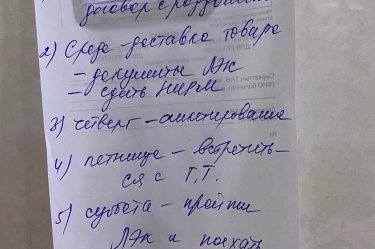 договор с роддомом
2) Среда - доставка товара
- документы ЛЖ
- сдать
3) четверг - анкетирование
4) петница - встретить-
ся с Т.Т.
5) суббота - пройти
ЛЭК и поехать